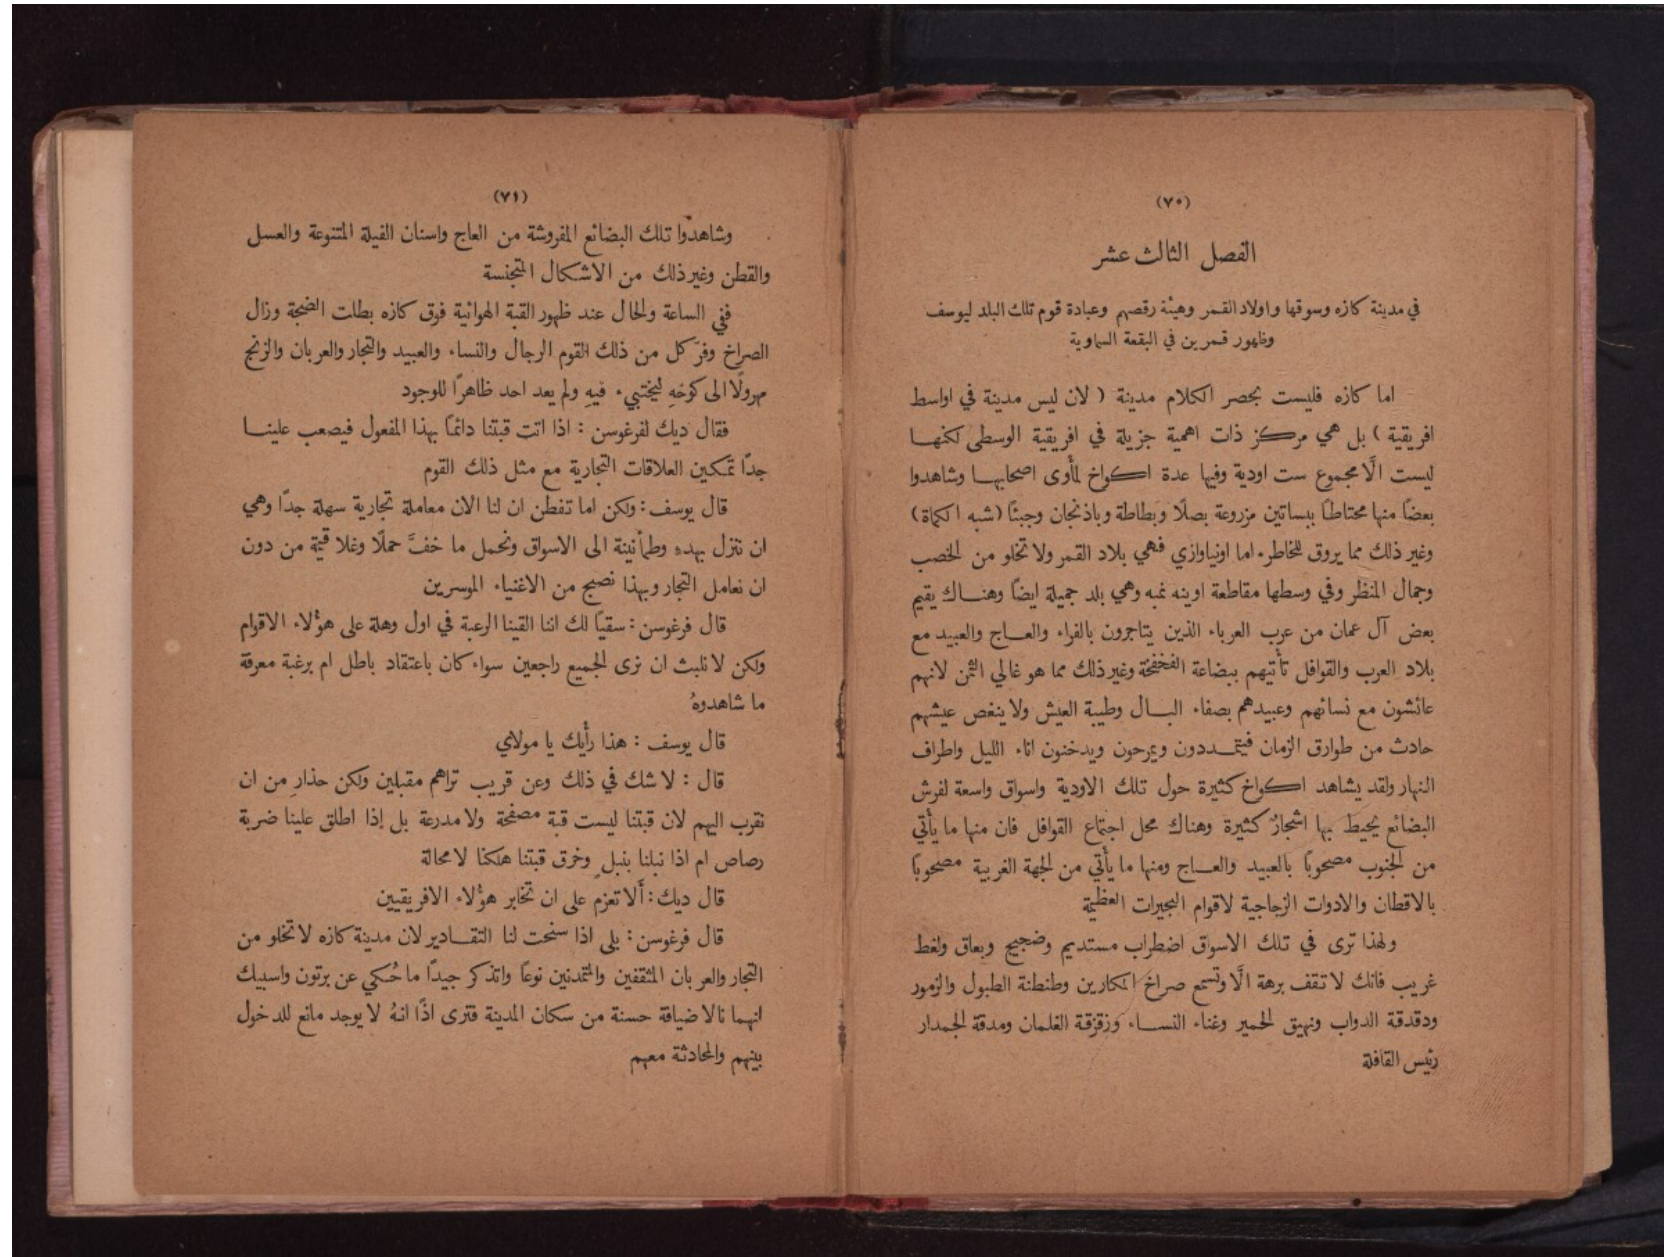 (٧٠)
الفصل الثالث عشر
في مدينة كازه وسوقها واولاد القمر وهيئة رقصهم وعبادة قوم تلك البلد ليوسف
وظهور قمرين في البقعة السماوية
اما كازه فليست بحصر الكلام مدينة ( لان ليس مدينة في اواسط
افريقية ) بل هي مركز ذات اهمية جزيلة في افريقية الوسطى لكنها
ليست الَّا مجموع ست اودية وفيها عدة اكواخ لمأوى اصحابها وشاهدوا
بعضًا منها محتاطًا ببساتين مزروعة بصلًا وبطاطة وباذنجان وجبئًا (شبه الكماة)
وغير ذلك مما يروق للخاطر. اما اونياوازي فهي بلاد القمر ولا تخلو من الخصب
وجمال المنظر وفي وسطها مقاطعة اوينه نمبه وهي بلد جميلة ايضًا وهناك يقيم
بعض آل عمان من عرب العرباء الذين يتاجرون بالفراء والعاج والعبيد مع
بلاد العرب والقوافل تأتيهم ببضاعة الفخفخة وغير ذلك مما هو غالي الثمن لانهم
عائشون مع نسائهم وعبيدهم بصفاء البال وطيبة العيش ولا ينغص عيشهم
حادث من طوارق الزمان فيتمددون ويمرحون ويدخنون اناء الليل واطراف
النهار ولقد يشاهد اكواخ كثيرة حول تلك الاودية واسواق واسعة لفرش
البضائع يحيط بها اشجارٌ كثيرة وهناك محل اجتماع القوافل فان منها ما يأتي
من الجنوب مصحوبًا بالعبيد والعاج ومنها ما يأتي من الجهة الغربية مصحوبًا
بالاقطان والادوات الزجاجية لاقوام البحيرات العظيمة
ولهذا ترى في تلك الاسواق اضطراب مستديم وضجيج وبعاق ولغط
غريب فانك لا تقف برهة الَّا وتسمع صراخ المكارين وطنطنة الطبول والزمور
ودقدقة الدواب ونهيق الحمير وغناء النساء وزقزقة الغلمان ومدقة الجمدار
رئيس القافلة
(٧١)
وشاهدوا تلك البضائع المفروشة من العاج واسنان الفيلة المتنوعة والعسل
والقطن وغير ذلك من الاشكال المتجنسة
ففي الساعة والحال عند ظهور القبة الهوائية فوق كازه بطلت الضجة وزال
الصراخ وفرّ كل من ذلك القوم الرجال والنساء والعبيد والتجار والعربان والزنج
مهرولًا الى كوخهِ ليختبيء فيهِ ولم يعد احد ظاهرًا للوجود
فقال ديك لفرغوسن : اذا اتت قبتنا دائمًا بهذا المفعول فيصعب علينا
جدًا تمكين العلاقات التجارية مع مثل ذلك القوم
قال يوسف : ولكن اما تفطن ان لنا الان معاملة تجارية سهلة جدًا وهي
ان ننزل بهدءِ وطمأنينة الى الاسواق ونحمل ما خفَّ حملًا وغلا قيمة من دون
ان نعامل التجار وبهذا نصبح من الاغنياء الموسرين
قال فرغوسن : سقيًا لك اننا القينا الرعبة في اول وهلة على هؤلاء الاقوام
ولكن لا نلبث ان نرى الجميع راجعين سواء كان باعتقاد باطل ام برغبة معرفة
ما شاهدوهُ
قال يوسف : هذا رأيك يا مولاي
قال : لا شك في ذلك وعن قريب تراهم مقبلين ولكن حذارِ من ان
نقرب اليهم لان قبتنا ليست قبة مصفحة ولا مدرعة بل إذا اطلق علينا ضربة
رصاص ام اذا نبلنا بنبلٍ وخرق قبتنا هلكنا لا محالة
قال ديك : ألا تعزم على ان تخابر هؤلاء الافريقيين
قال فرغوسن : بلى اذا سنحت لنا التقادير لان مدينة كازه لا تخلو من
التجار والعربان المثقفين والمتمدنين نوعًا واتذكر جيدًا ما حُكي عن برتون واسبيك
انهما نالا ضيافة حسنة من سكان المدينة فترى اذًا انهُ لا يوجد مانع للدخول
بينهم والمحادثة معهم